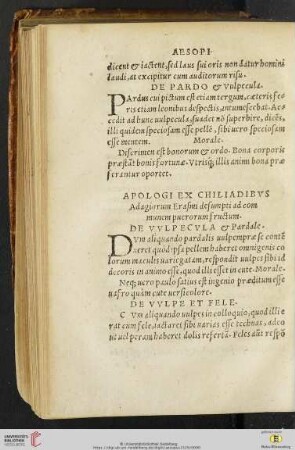 AESOPI
dicent & iactent, sed laus sui oris non datur homini
laudi, at excipitur cum auditorum risu.
DE PARDO & Vulpecula.
PArdus cui pictum est etiam tergum, cæteris fe-
ris etiam leonibus despectis, intumescebat. Ac-
cedit ad hunc vulpecula, suadet nō superbire, dicēs,
illi quidem speciosam esse pellē, sibi vero speciosam
esse mentem. Morale.
Discrimen est bonorum & ordo. Bona corporis
præstāt bonis fortunæ. Vtrisq; illis animi bona præ
ferantur oportet.
APOLOGI EX CHILIADIBVS
Adagiorum Erasmi desumpti ad com
munem puerorum fructum.
DE VVLPECVLA & Pardale.
DVm aliquando pardalis vulpem præ se contē
neret quod ipsa pellem haberet omnigenis co
lorum maculis variegatam, respondit vulpes sibi id
decoris in animo esse, quod illi esset in cute. Morale.
Neq; vero paulo satius est ingenio præditum esse
vafro quàm cute versicolore.
DE VVLPE ET FELE.
CVm aliquando vulpes in colloquio, quod illi e
rat cum fele, iactaret sibi varias esse technas, adeo
ut vel peram haberet dolis refertā. Feles aūt respō
UNIVERSITÄTS-
BIBLIOTHEK
HEIDELBERG
© Universitätsbibliothek Heidelberg